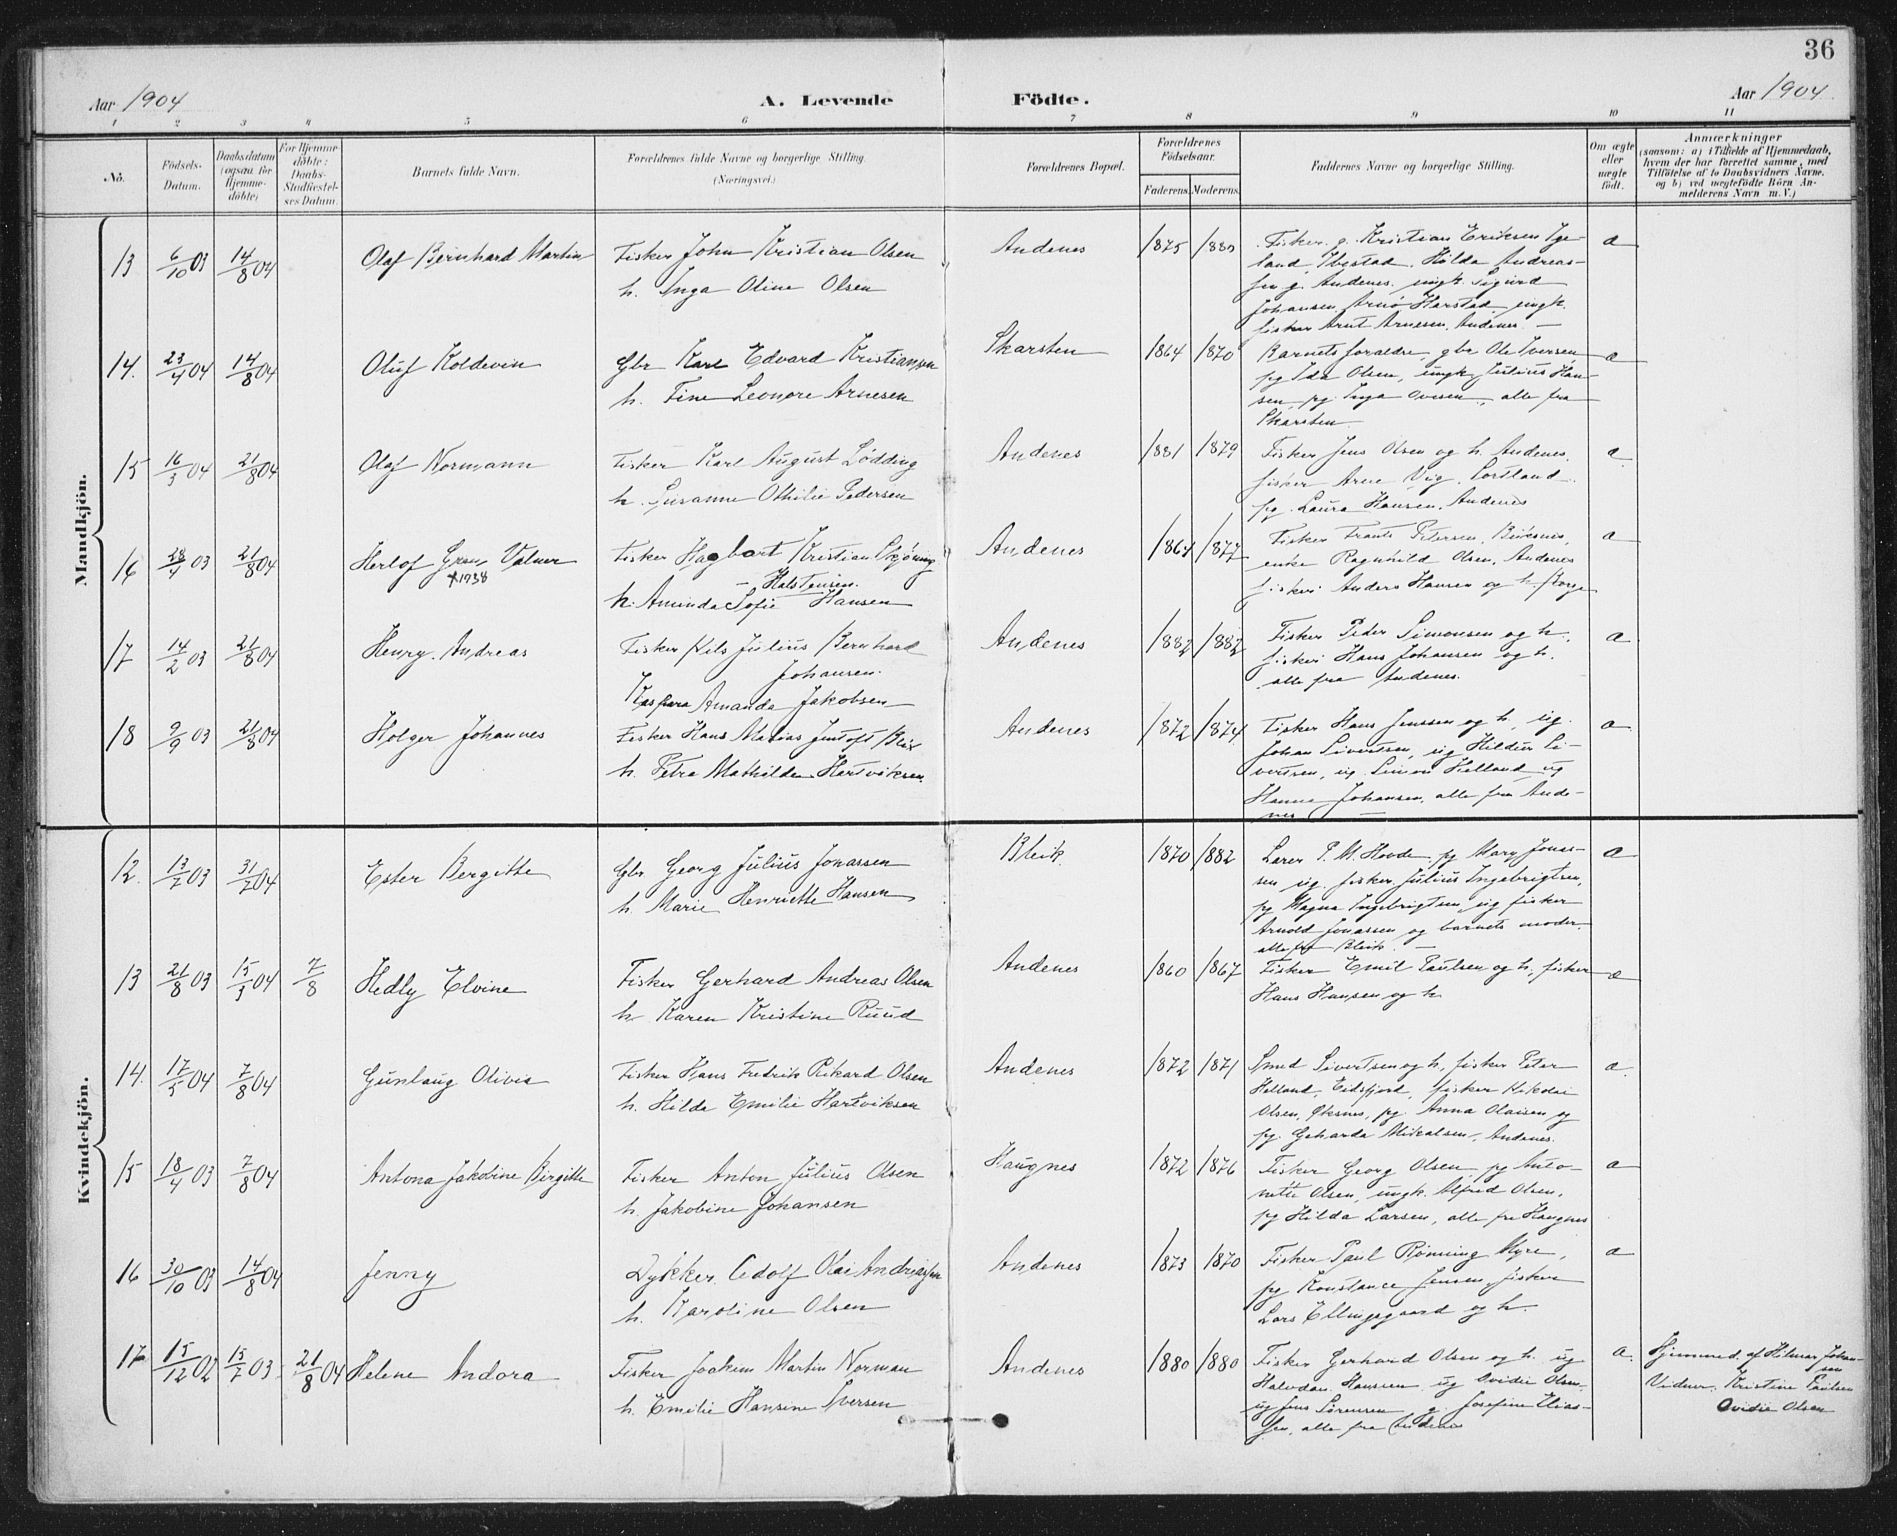 36
Aar 1904
A. Levende Födte.
Aar 1904
1 2 3 4 5 6 7 8 9 10 11
No. Födsels-Datum. Daabsdatum (ogsaa for Hjemmedöbte) For Hjemmedöbte: Daabs-Stadfæstelses Datum. Barnets fulde Navn. Forældrenes fulde Navne og borgerlige Stilling. (Næringsvei.) Forældrenes Bopæl. Forældrenes Födselsaar. Faderens. Moderens. Faddernes Navne og borgerlige Stilling. Om ægte eller uægte födt. Anmærkninger
(saasom: a) i Tilfælde af Hjemmedaab,
hvem der har forrettet samme, med
Tilföielse af to Daabsvidners Navne.
og b) ved uægtefödte Börn An-
melderens Navn m.V.)
Mandkjön.
13 6/10 03 14/8 04 Olaf Bernhard Martin Fisker John Kristian Olsen Andenes 1875 1880 Fisker g. Kristian Eriksen Ige-
h. Inga Oline Olsen land, Ibestad, Hilda Andreas-
sen g. Andenes, ungk. Sigurd
Johansen, Arnö Harstad, ungk.
fisker Arnt Arnesen, Andenes. — a
14. 23/4 04 14/8 04 Oluf Koldevin Gbr Karl Edvard Kristiansen Skarsten 1864 1870 Barnets forældre, gbr Ole Iversen, a
h. Fine Leonore Arnesen pg Ida Olsen, ungk Julius Han-
sen, pg. Inga Ovesen, alle fra
Skarsten.
15 16/3 04 21/8 04 Olaf Normann Fisker Karl August Lødding Andenes 1881 1879 Fisker Jens Olsen og h. Andenes, a
h. Susanne Othilie Pedersen fisker Arne Vig, Sortland.
pg. Laura Hansen, Andenes
16 28/4 03 21/8 04 Herlof Valmer Fisker Hagbart Kristian Andenes 1864 1877 Fisker Petersen, a
† 1938 — Halstensen. enke Ragnhild Olsen, Andenes
h. Aminda Sofie Hansen fisker Anders Hansen og h.
17 14/2 03 21/8 04 Henry Andreas Fisker Nils Julius Bernhard Andenes 1882 1882 Fisker Peder Simonsen og h. a
Johansen. fisker Hans Johansen og h.
Kaspara Amanda Jakobsen alle fra Andenes.
18 9/9 03 21/8 04 Holger Johannes Fisker Hans Matias Jentoft Blix Andenes 1872 1874 Fisker Hans Jenssen og h, ug. a
h. Petra Mathilde Hertviksen. Johan Sivertsen, ug Hildur Si-
vertsen, ug. Simon Helland ug
Hanna Johansen, alle fra Ande-
nes —
Kvindekjön.
12. 13/7 03 31/7 04 Ester Bergitte Gbr. Georg Julius Jonassen Bleik 1870 1882 Lærer P. M. Hovde, pg Mary Jonas- a
h. Marie Henriette Hansen sen ug. fisker Julius Ingebrigtsen,
pg Magna Ingebrigtsen, ug fisker
Arnold Jonassen og barnets moder.
alle fra Bleik. —
13 21/8 03 15/3 04 7/8 Hedly Elvine Fisker Gerhard Andreas Olsen Andenes 1860 1867 Fisker Emil Paulsen og h., fisker a
h. Karen Kristine Ruud Hans Hansen og h.
14. 17/5 04 7/8 04 Gunlaug Olivia Fisker Hans Fredrik Rikard Olsen Andenes 1872 1871 Smed Sivertsen og h, fisker Peter a.
h. Hilda Emilie Hartviksen Helland, Eidsfjord, fisker Nikolai
Olsen, Øksnes, pg. Anna Olaisen og
pg. Geharda Mikalsen, Andenes.
15 18/4 03 7/8 04 Antona Jakobine Birgitte Fisker Anton Julius Olsen Haugnes 1872 1876 Fisker Georg Olsen, pg Anto- a
h. Jakobine Johansen nette Olsen, ungk. Alfred Olsen,
pg Hilda Larsen, alle fra Haugnes
16 30/10 03 14/8 04 Jenny Dykker Adolf Olai Andreassen Andenes 1873 1870 Fisker Paul Rønning Myre, a
h. Karoline Olsen pg Konstance Jensen, fisker
Lars Ellingsgaard og h.
17 15/12 02 15/7 03 21/8 04 Helene Andora Fisker Joakim Martin Norman Andenes 1880 1880 Fisker Gerhard Olsen og h. ug a. Hjemmed. af Hilmar Johan-
h. Emilie Hansine Iversen Halvdan Hanssen, ug Ovidie Olsen, sen
ug Jens Sörensen, g. Josefine Elias- Vidner. Kristine Paulsen
sen, alle fra Andenes Ovidie Olsen